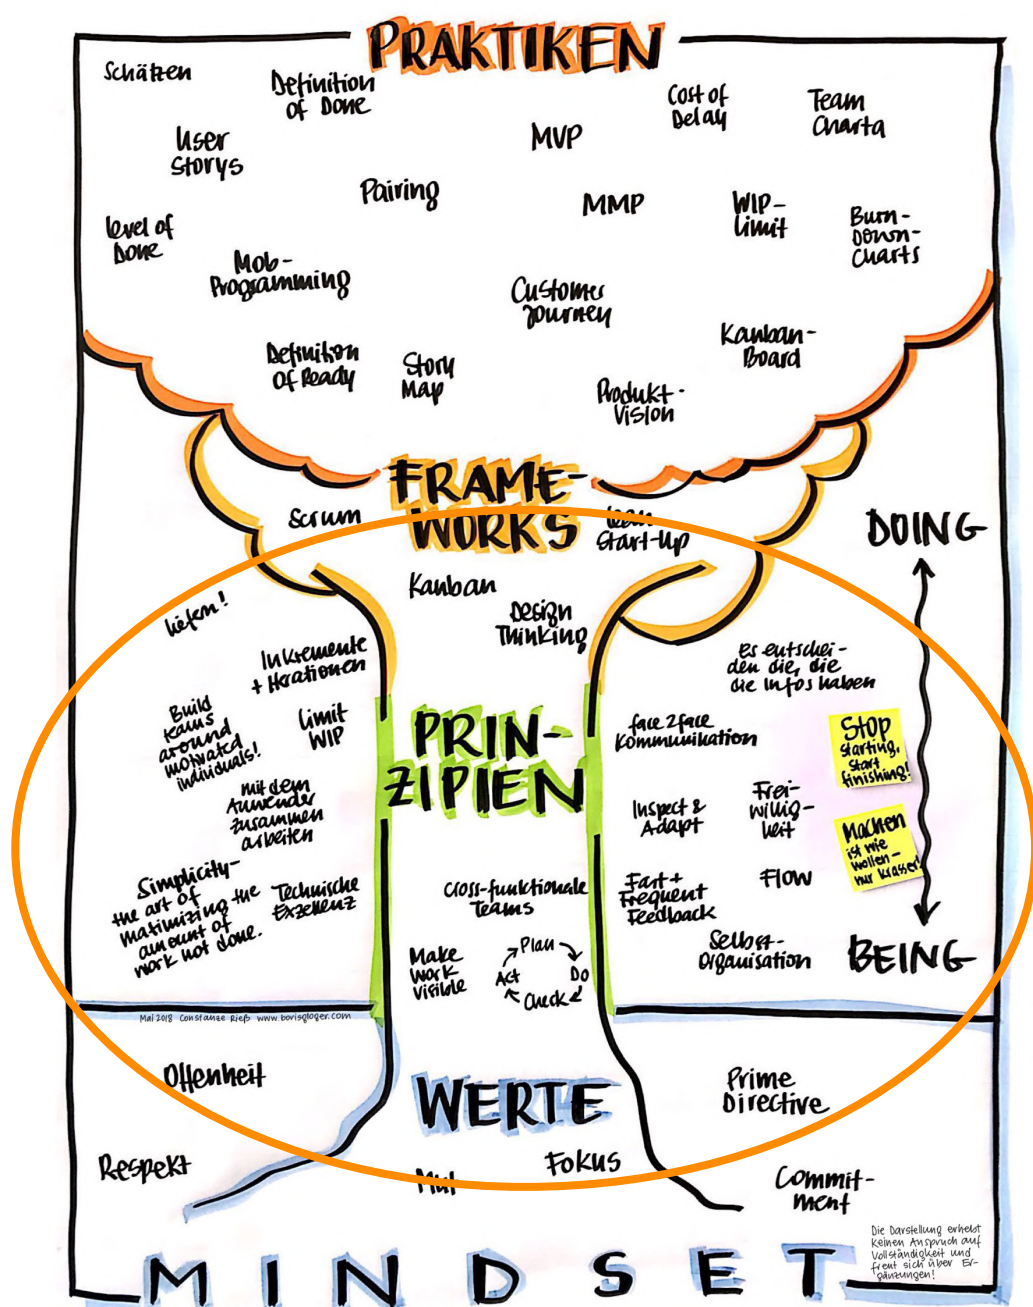 PRAKTIKEN
Schätzen
Definition
of Done
Cost of
Delay
Team
Charta
User
Storys
MVP
Pairing
MMP
WIP-
Limit
Burn-
Down-
Charts
Level of
Done
Mob-
Programming
Customer
Journey
Kanban-
Board
Definition
of Ready
Story
Map
Produkt-
Vision
FRAME-
WORKS
Scrum
Lean
Start-Up
Kanban
Design
Thinking
DOING
liefern!
Inkremente
+ Iterationen
Es entschei-
den die, die
die Infos haben
Build
teams
around
motivated
individuals!
Limit
WIP
PRIN-
ZIPIEN
face2face
Kommunikation
Stop
starting,
start
finishing!
mit dem
Anwender
zusammen
arbeiten
Inspect &
Adapt
Frei-
willig-
keit
Machen
ist wie
wollen-
nur krasser!
Simplicity-
the art of
maximizing the
amount of
work not done.
Technische
Exzellenz
Cross-funktionale
Teams
Fast +
Frequent
Feedback
Flow
Make
work
visible
Plan
Do
Check
Act
Selbst-
Organisation
BEING
Mai 2018 Constanze Rieß www.borisgloger.com
Offenheit
WERTE
Prime
Directive
Respekt
Mut
Fokus
Commit-
ment
Die Darstellung erhebt
keinen Anspruch auf
Vollständigkeit und
freut sich über Er-
gänzungen!
MINDSET